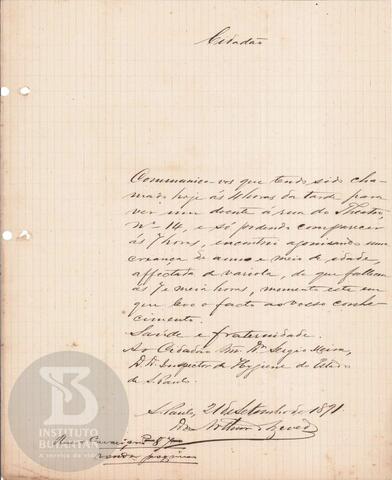 Cidadão
Communico-vos que tendo sido cha-
mado hoje ás 4 horas da tarde para
ver um doente á rua do Theatro,
Nº 14, e só podendo comparecer
ás 7 horas, encontrei agonisando uma
creança de anno e meio de edade,
affectada de variola, de que falleceu
ás 7 e meia horas, momento este em
que levo o facto ao vosso conhe-
cimento.
Saude e fraternidade.
Ao Cidadão Snr. Dr. Sergio Meira,
D. D. Inspector de Hygiene do Estado
de S. Paulo.
S. Paulo, 21 de Setembro de 1891
Arthur Azevedo
INSTITUTO
BUTANTAN
A serviço da vida